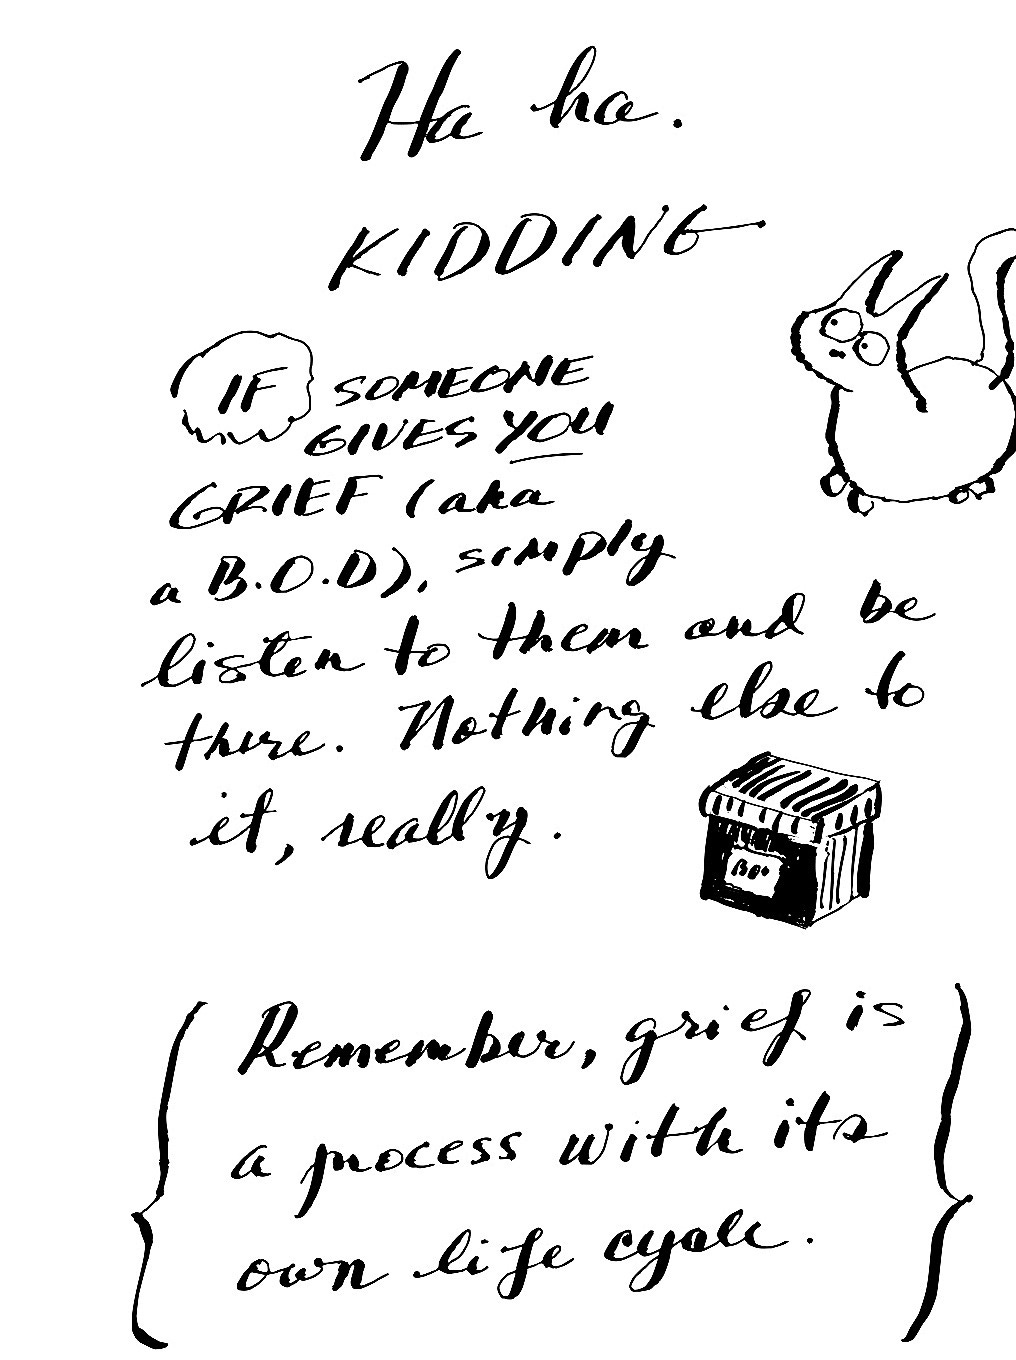 Ha ha.
KIDDING
IF SOMEONE
GIVES YOU
GRIEF (aka
a B.O.D), simply
listen to them and be
there. Nothing else to
it, really.
Remember, grief is
a process with its
own life cycle.